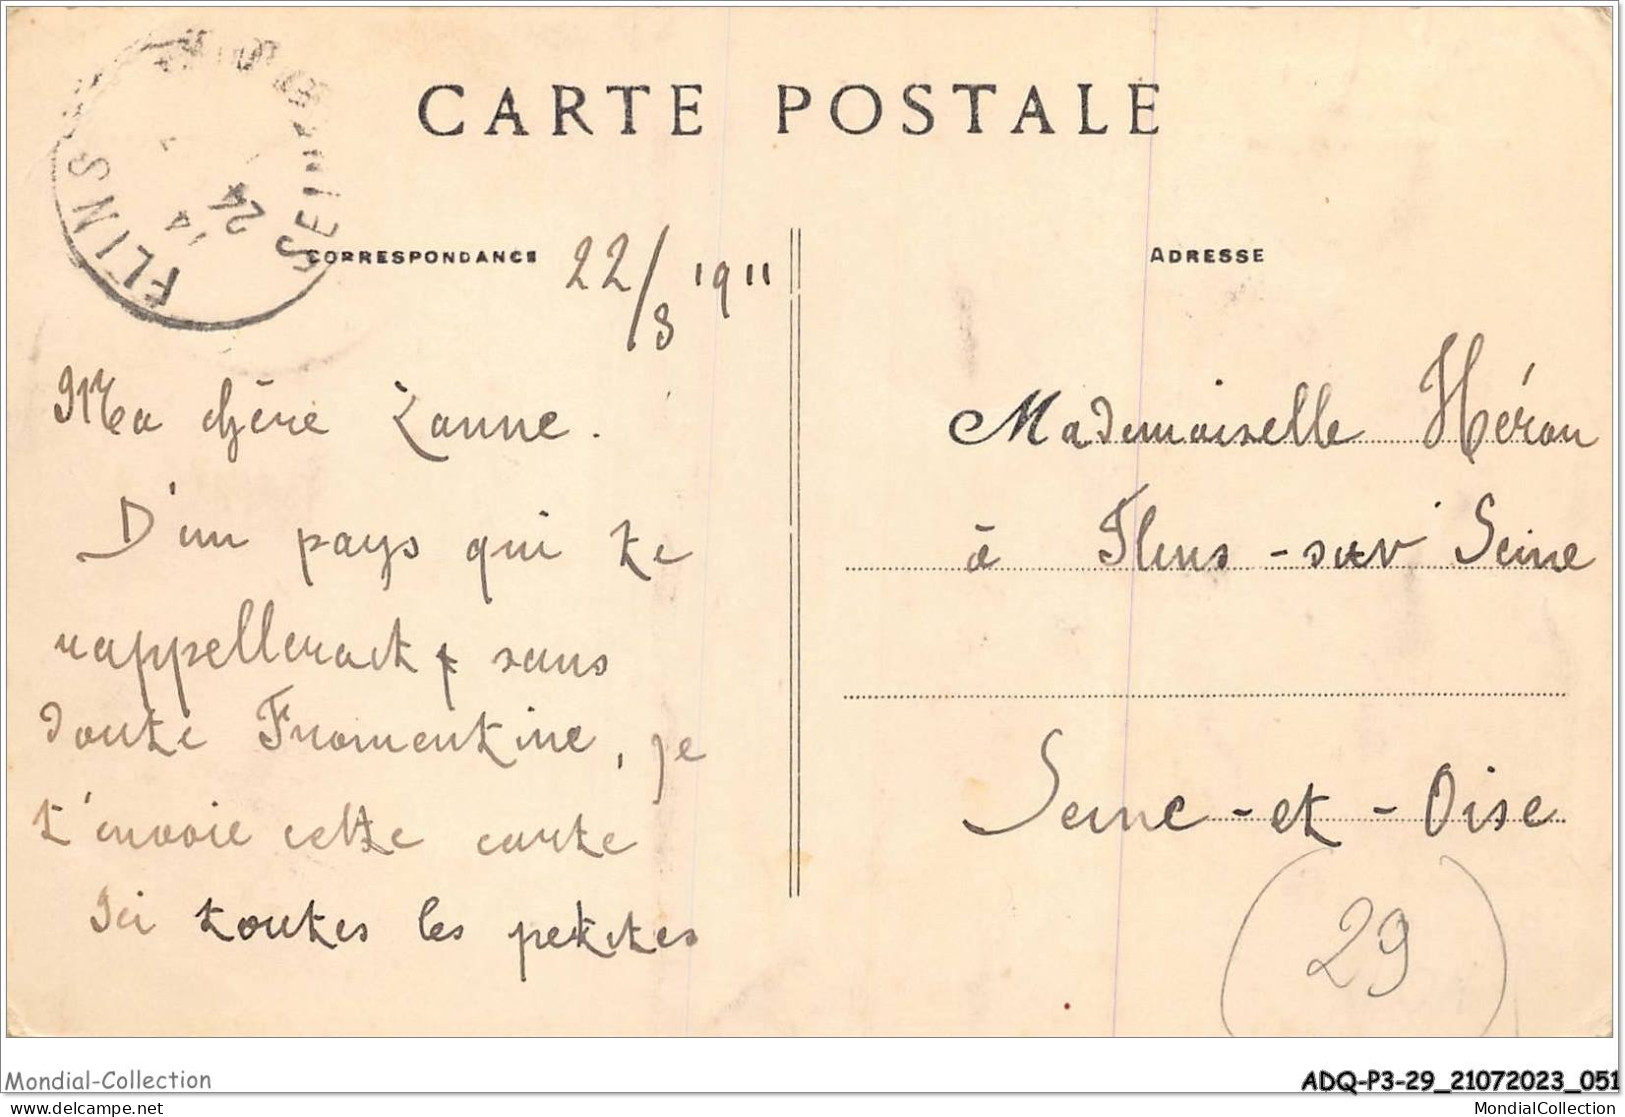 CARTE POSTALE
FLINS
14
24
SEINE
CORRESPONDANCE
22/8 1911
ADRESSE
Ma chère Zanne.
D'un pays qui te
rappellerait sans
doute Fromentine, je
t'envoie cette carte
Ici toutes les petites
Mademoiselle Héron
à Flins-sur Seine
Seine-et-Oise
(29)
Mondial-Collection
ADQ-P3-29_21072023_051
delcampe.net
MondialCollection